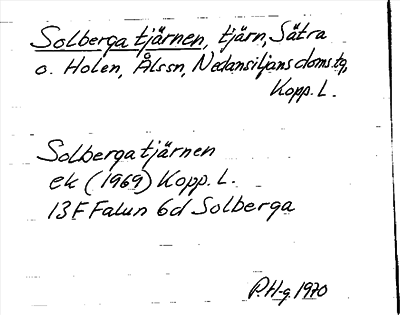 Solberga tjärnen, tjärn, Sätra
o. Holen, Ålssn, Nedansiljans doms.tg,
Kopp. L.
Solbergatjärnen
ek (1969) Kopp. L.
13F Falun 6d Solberga
P. H-g. 1970